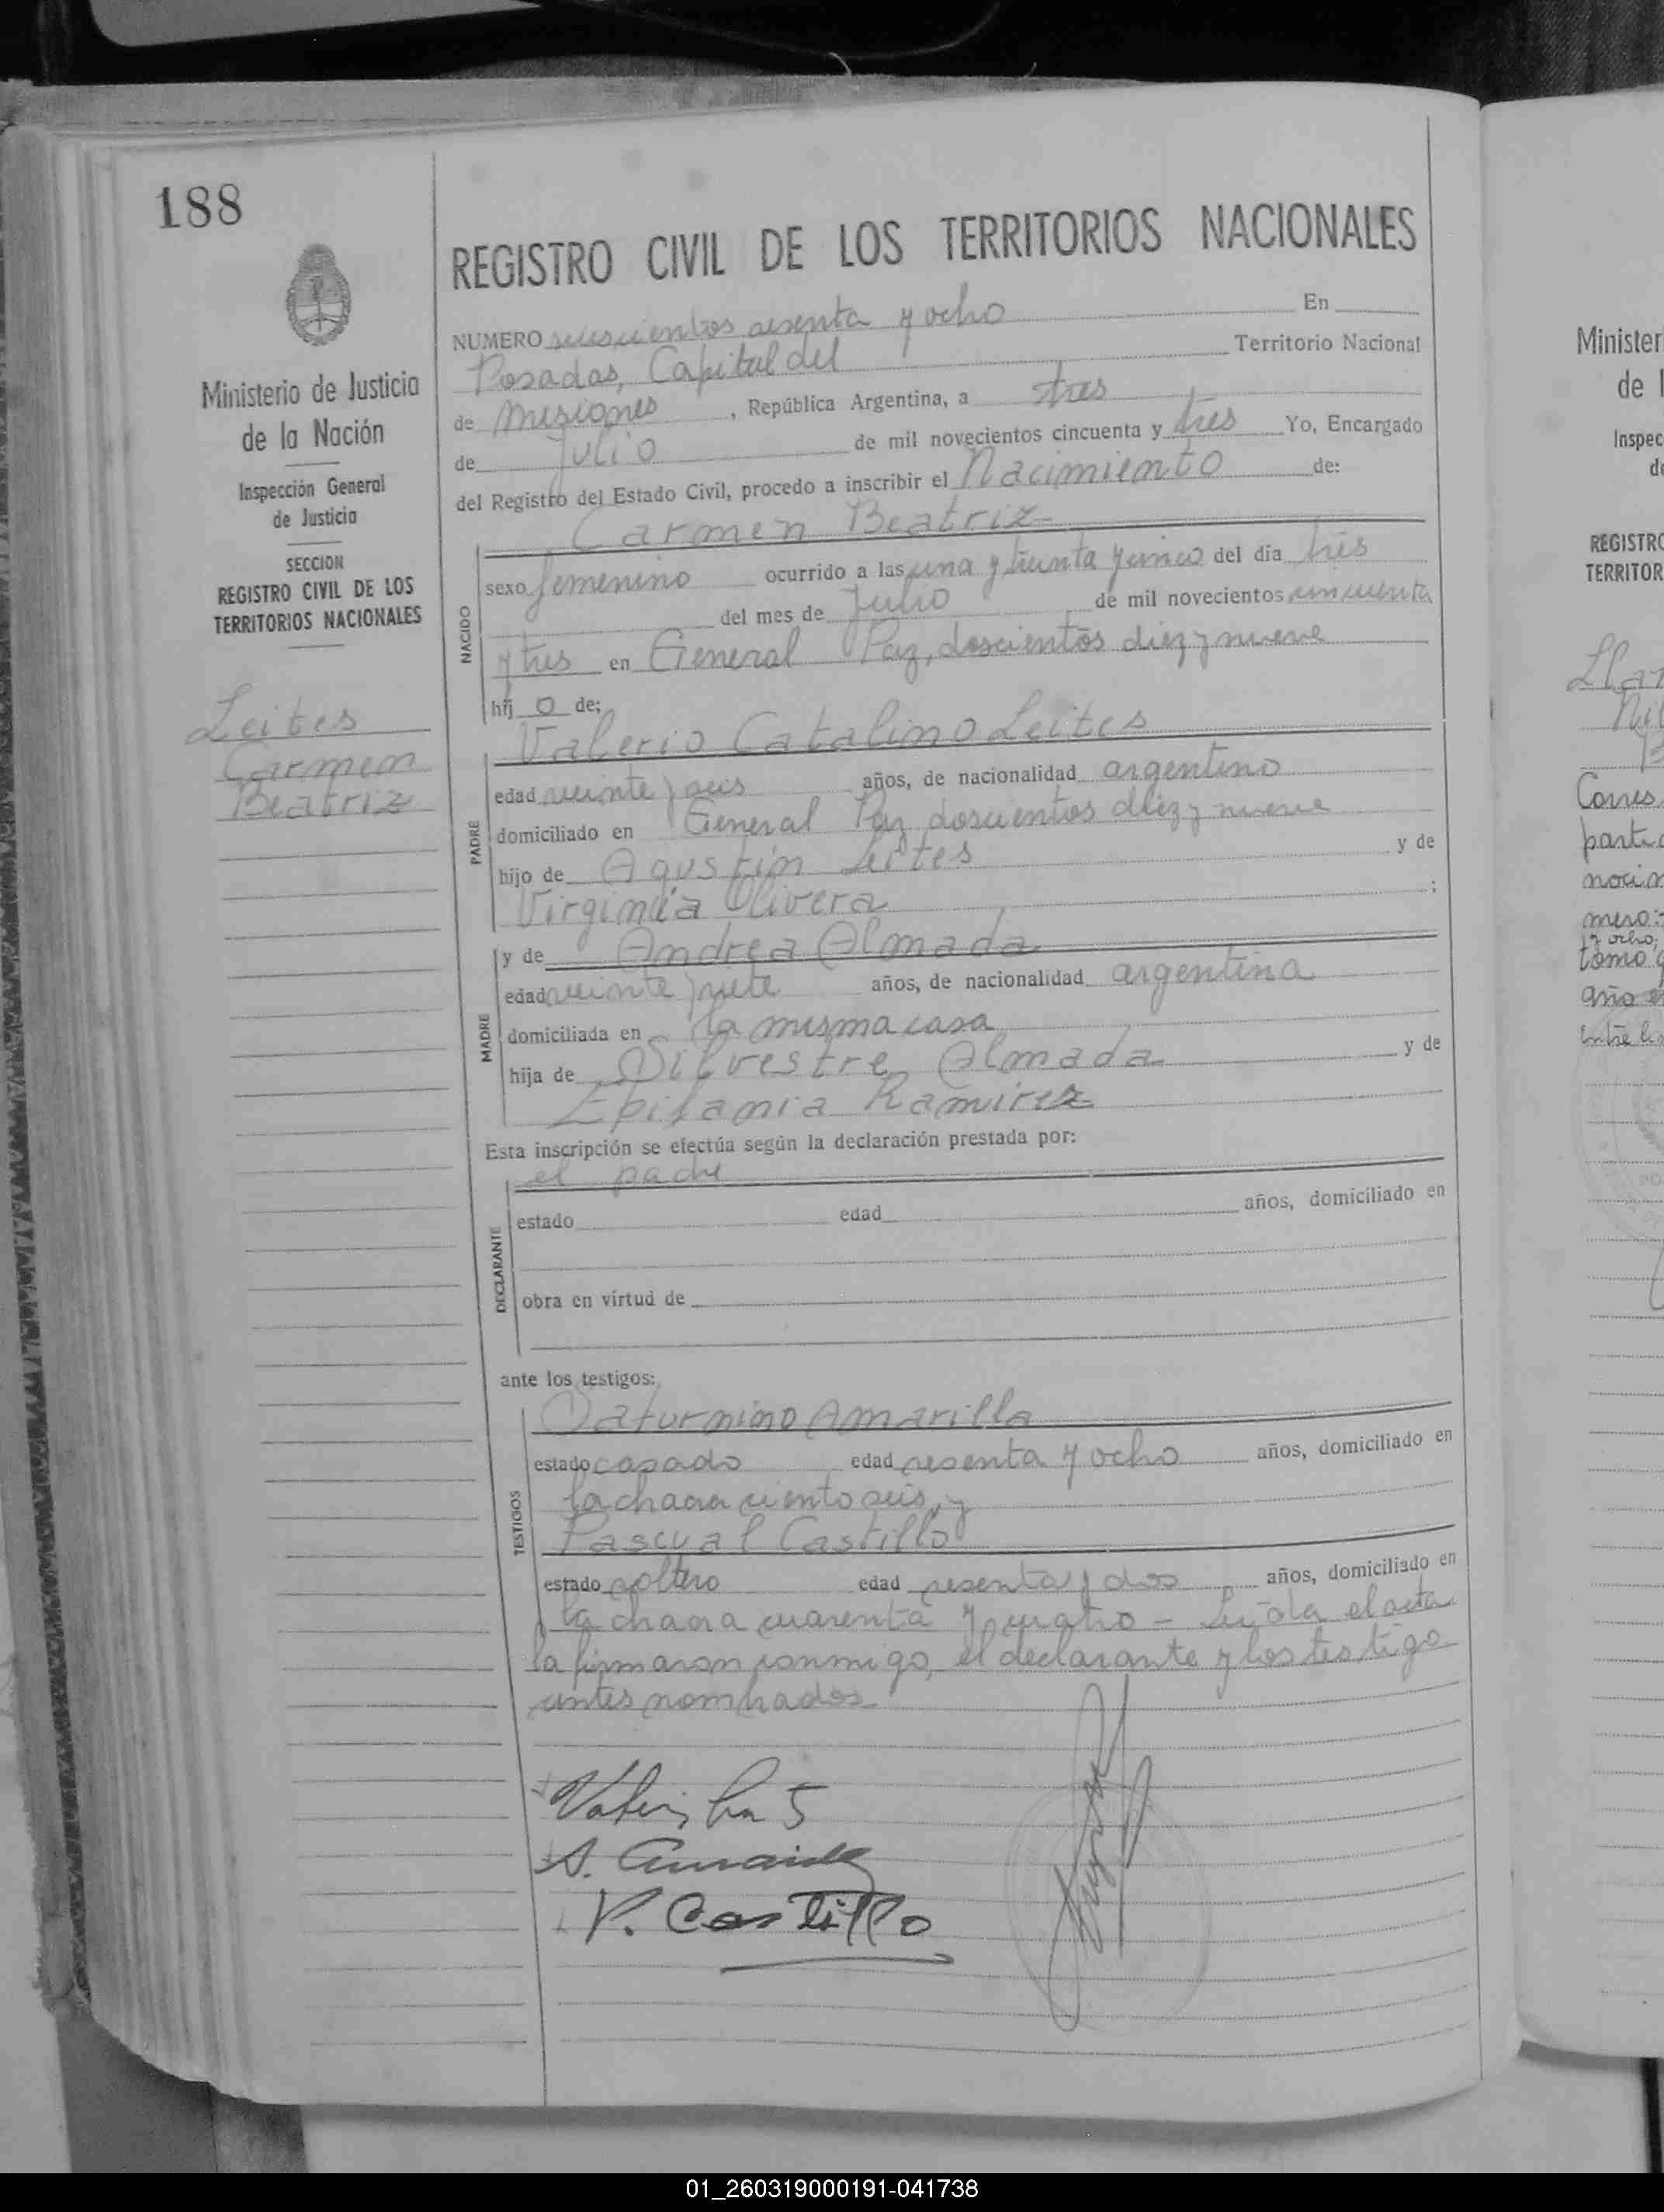 188
REGISTRO CIVIL DE LOS TERRITORIOS NACIONALES
Ministerio de Justicia
de la Nación
Inspección General
de Justicia
SECCION
REGISTRO CIVIL DE LOS
TERRITORIOS NACIONALES
Leites
Carmen
Beatriz
NUMERO seiscientos sesenta y ocho En
Posadas, Capital del Territorio Nacional
de Misiones, República Argentina, a tres
de Julio de mil novecientos cincuenta y tres Yo, Encargado
del Registro del Estado Civil, procedo a inscribir el Nacimiento de:
Carmen Beatriz
NACIDO
sexo femenino ocurrido a las una y treinta y cinco del día tres
del mes de Julio de mil novecientos cincuenta
y tres en General Paz, doscientos diez y nueve
hij o de;
Valerio Catalino Leites
PADRE
edad veinte y seis años, de nacionalidad argentino
domiciliado en General Paz doscientos diez y nueve
hijo de Agustín Leites y de
Virginia Olivera ;
y de Andrea Almada
MADRE
edad veinte y siete años, de nacionalidad argentina
domiciliada en la misma casa
hija de Silvestre Almada y de
Epifania Ramirez
Esta inscripción se efectúa según la declaración prestada por:
el padre
DECLARANTE
estado edad años, domiciliado en
obra en virtud de
ante los testigos:
Saturnino Amarilla
TESTIGOS
estado casado edad sesenta y ocho años, domiciliado en
la chacra ciento seis, y
Pascual Castillo
estado soltero edad sesenta y dos años, domiciliado en
la chacra cuarenta y cuatro - Leída el acta
la firmaron conmigo, el declarante y los testigo
antes nombrados
P. Castillo
Minister
de l
Inspec
de
REGISTRO
TERRITOR
01_260319000191-041738